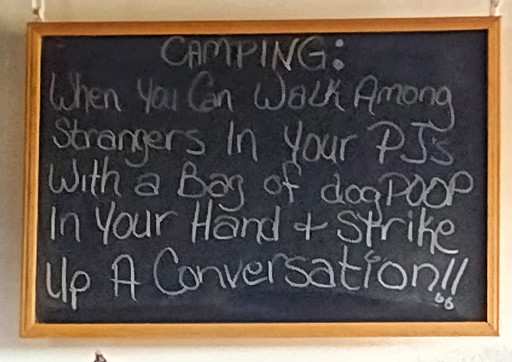 CAMPING:
When You Can Walk Among
Strangers In Your PJ's
With a Bag of dog POOP
In Your Hand + Strike
Up A Conversation!!